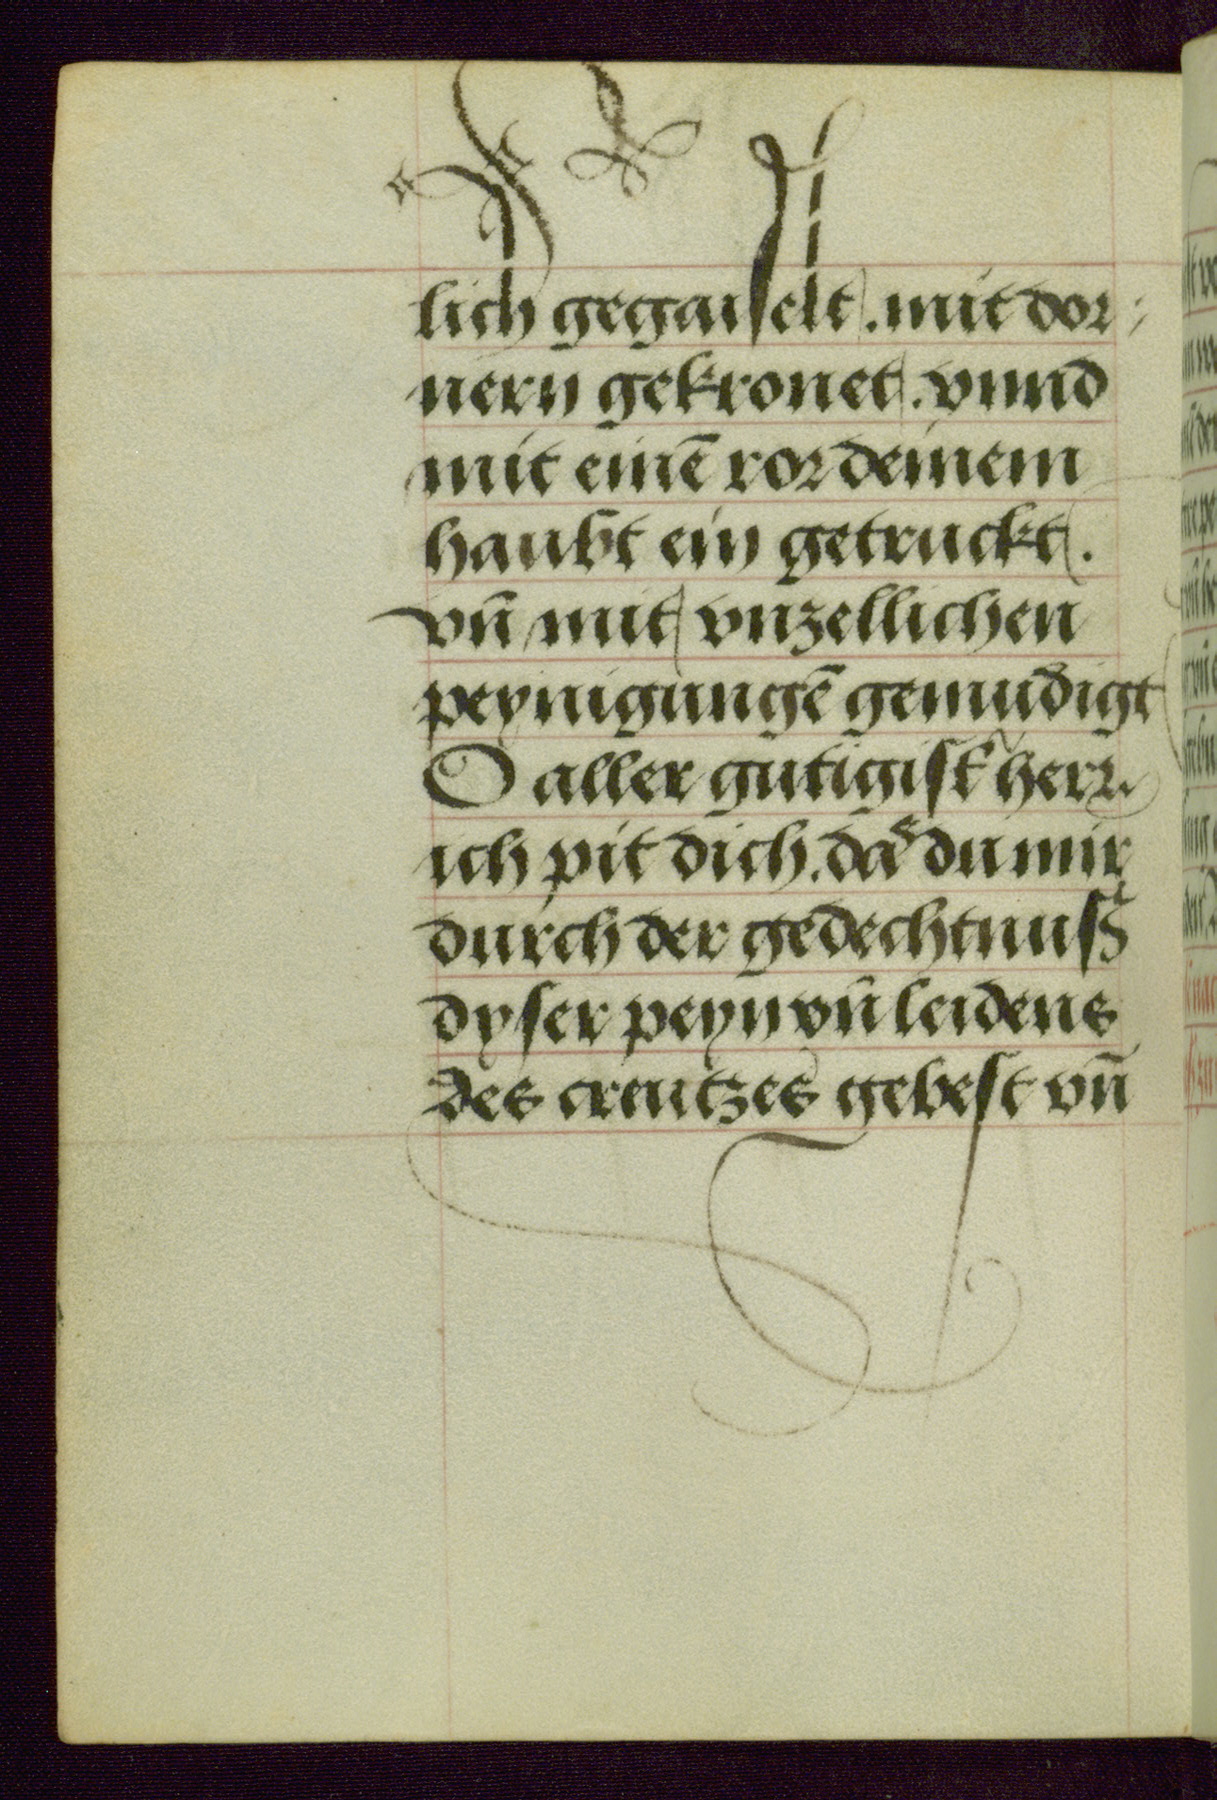 lich gegaiselt. mit dor-
nern gekronet. vnnd
mit einē ror deinem
haubt ein getruckt.
vn̄ mit vnzellichen
peynigungē gemudigt
O aller gutigist herr.
ich pit dich. das du mir
durch der gedechtnuß
dyser peyn vn̄ leidens
des creutzes gebest vn̄